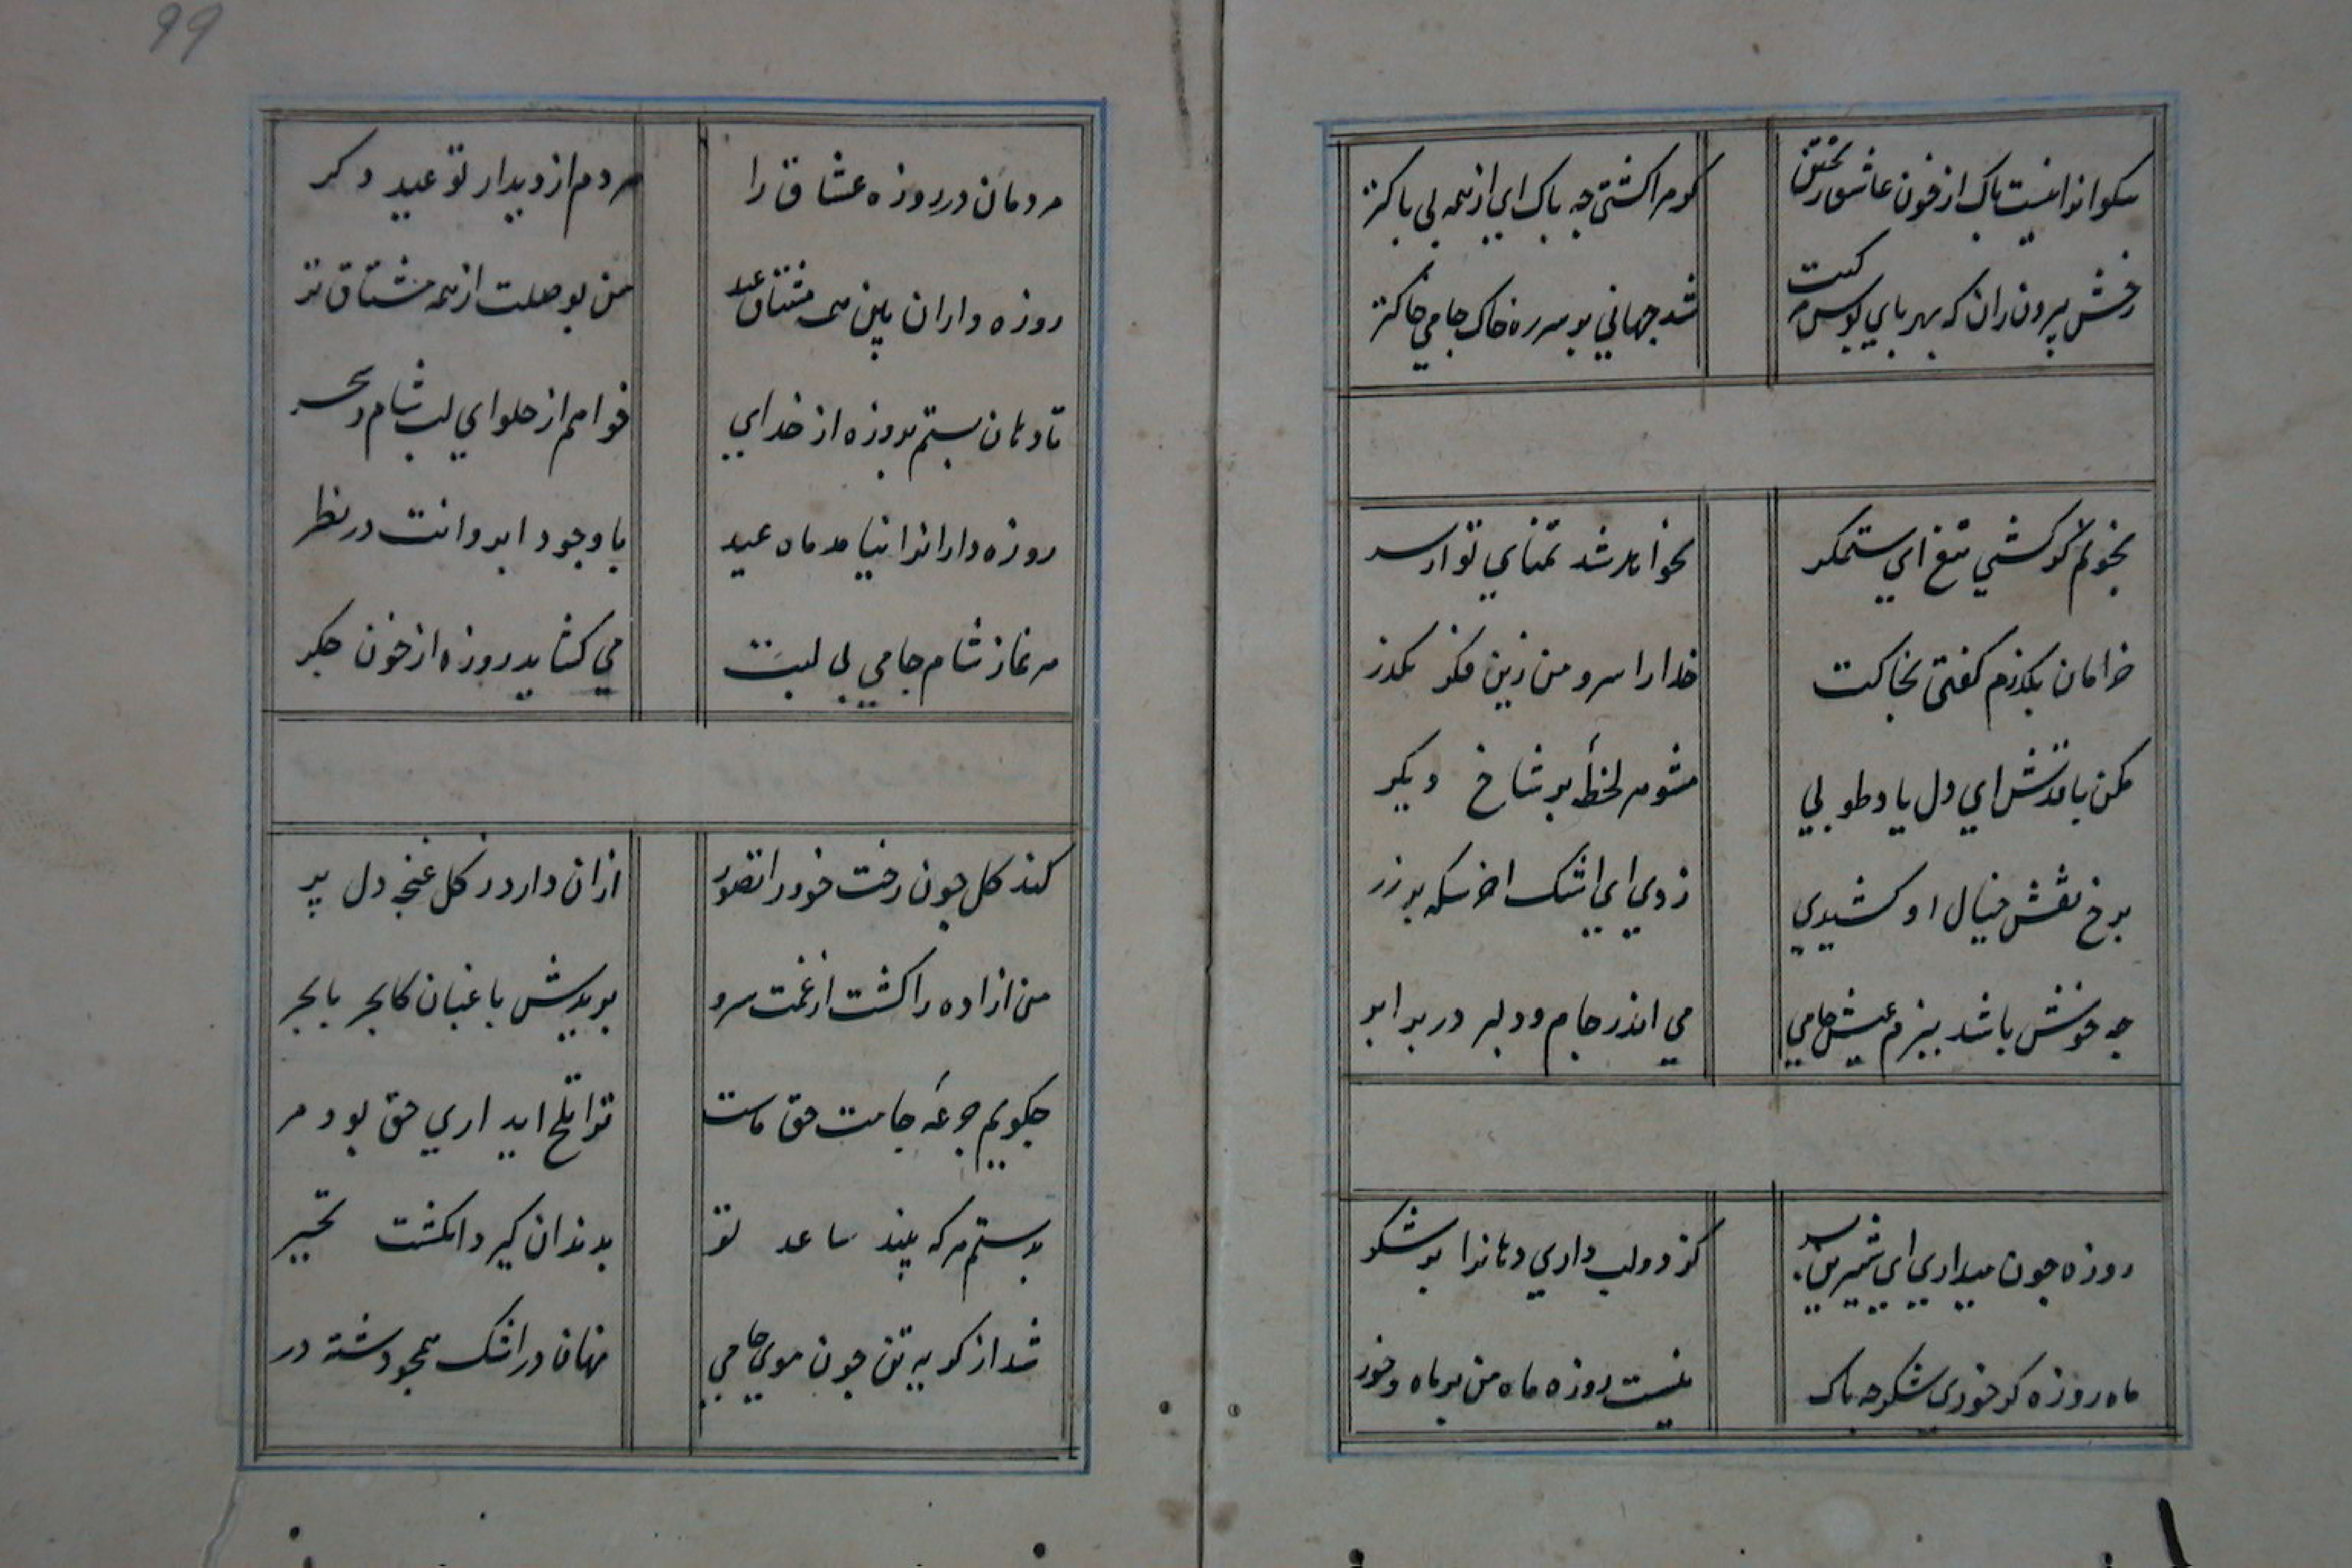 نیکوانرا نیست باک از خون عاشق ریختن
کر مرا کشتی چه باک ای از همه بی باکتر
رخش بیرون ران که بهر پای بوس مرکبت
شد جهانی بر سر ره خاک جامی خاکتر
بخونم کر کشی تیغ ای ستمکر
نخواهد شد تمنای تو از سر
خرامان بکذرم کفتی بخاکت
خدا را سرو من زین فکر مکذر
مکن با قدش ای دل یاد طوبی
مشو هر لحظه بر شاخ دیکر
برخ نقش خیال او کشیدی
زدی ای اشک اخر سکه بر زر
چه خوش باشد ببزم عیش جامی
می اندر جام و دلبر در برابر
روزه چون میداری ای شیرین پسر
کز دو لب داری دهانرا پر شکر
ماه روزه کر خوری شکر چه باک
نیست روزه ماه من بر ماه و خور
مردمان در روزه عشاق را
هر دم از دیدار تو عید دکر
روزه داران بین همه مشتاق عید
من بوصلت از همه مشتاق تر
تا دهان بستم بروزه از خدای
خواهم از حلوای لب شام و سحر
روزه دارانرا نیامد ماه عید
با وجود ابروانت در نظر
هر نماز شام جامی بی لبت
می کشاید روزه از خون جکر
کند کل چون رخت خود را تصور
ازان دارد ز کل غنچه دل پر
من ازاده را کشت از غمت سرو
ببریدش باغبان کالجر بالجر
چکویم جرعه جامت حق ماست
ترا تلخ اید اری حق بود مر
بدستم هر که بیند ساعد تو
بدندان کیرد انکشت تحیر
شد از کریه تن چون موی جامی
نهان در اشک همچو رشته در
99